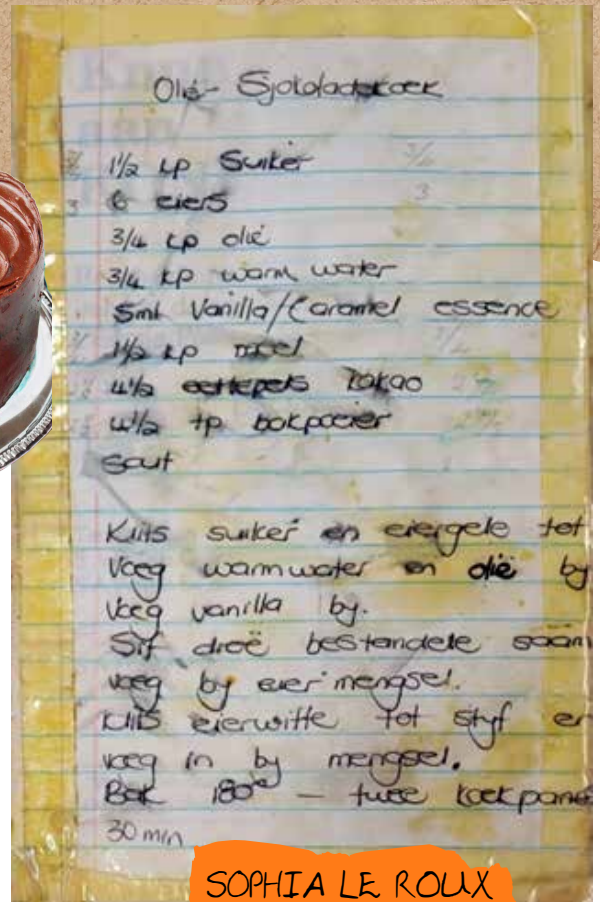 Olie- Sjokoladekoek
1½ kp Suiker
6 eiers
3/4 kp olie
3/4 kp warm water
5ml Vanilla/Caramel essence
1½ kp meel
4½ eetlepels kakao
4½ tp bakpoeier
Sout
Klits suiker en eiergele tot
Voeg warm water en olie by
Voeg vanilla by.
Sif droë bestandele saam
voeg by eier mengsel.
Klits eierwitte tot styf en
voeg in by mengsel.
Bak 180° – twee koekpanne
30 min
SOPHIA LE ROUX